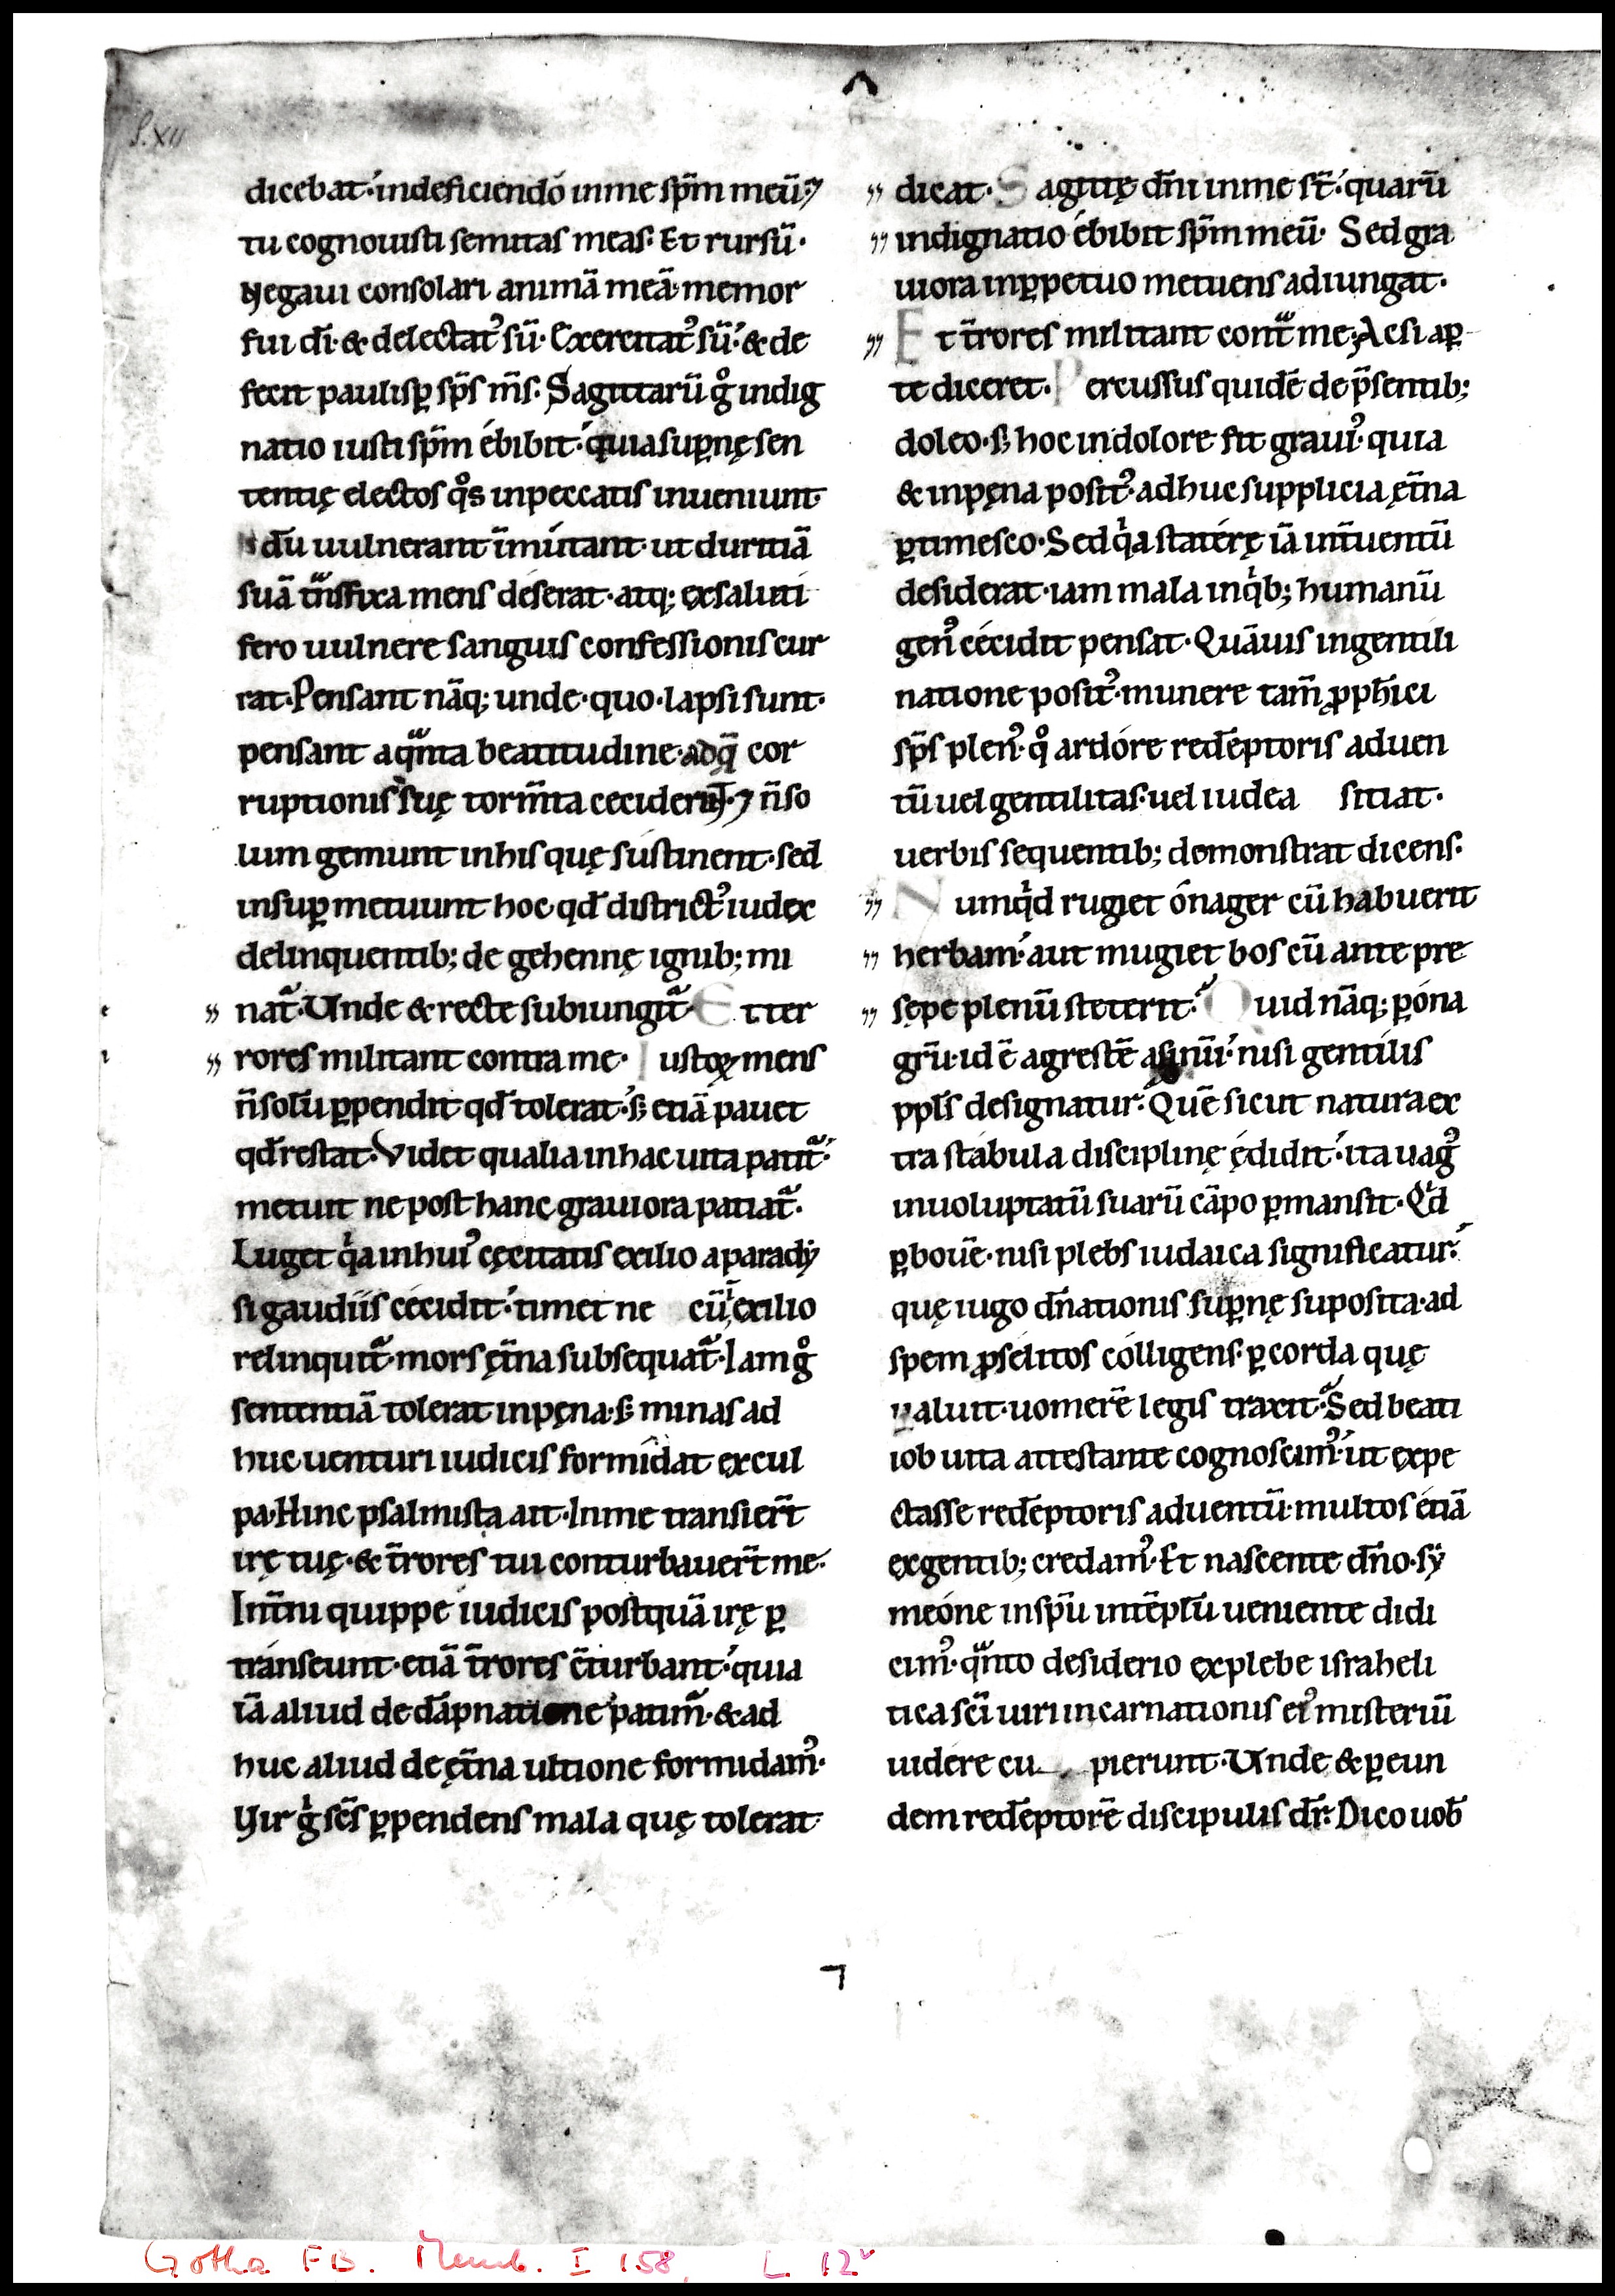 S. XII
dicebat·́ indeficiendo inme sp̄m meū· ⁊
tu cognouisti semitas meas· Et rursū·
Negaui consolari animā meā· memor
fui dī· & delectatꝰ sū· Exercitatꝰ sū·́ & de
fecit paulisꝑ sp̄s m̄s· Sagittarū gͦ indig
natio iusti sp̄m ebibit·́ quia suꝑnę sen
tentię electos qͦs inpeccatis inueniunt·
dū uulnerant īmutant· ut duritiā
suā tͣnsfixa mens deserat· atq; exsaluti
fero uulnere sanguis confessionis cur
rat· Pensant nāq; unde· quo· lapsi sunt·
pensant aqͣnta beatitudine· adq̄ cor
ruptionis suę torm̄ta ceciderunt· ⁊ n̄ so
lum gemunt inhis quę sustinent· sed
insuꝑ metuunt hoc qd̄ districtꝰ iudex
delinquentib; de gehennę ignib; mi
naͭ· Unde & recte subiungiͭ· Et ter
rores militant contra me· Iustoꝝ mens
n̄ solū ꝑpendit qd̄ tolerat·́ sꝫ etiā pauet
qd̄ restat· Videt qualia inhac uita patiͭ·́
metuit ne post hanc grauiora patiaͭ·
Luget qͥa inhuiꝰ cęcitatis exilio a parady
si gaudiis cecidit·́ timet ne cū exilio
relinquiͭ· mors ęt̄na subsequaͭ· Iam gͦ
sententiā tolerat inpęna· sꝫ minas ad
huc uenturi iudicis formidat excul
pa· Hinc psalmista ait· Inme transier̄t
irę tuę· & t̄rores tui conturbauer̄t me·
Int̄ni quippe iudicis postquā irę ꝑ
transeunt· etiā t̄rores c̄turbant·́ quia
iā aliud de dāpnatione patim̃· & ad
huc aliud de ęt̄na ultione formidamꝰ·
Vir gͥ sc̄s ꝑpendens mala quę tolerat·
dicat· Sagittę dn̄i inme st̄·́ quarū
indignatio ebibit sp̄m meū· Sed gra
uiora inꝑpetuo metuens adiungat·
Et t̄rores militant contͣ me· Acsi aꝑ
te diceret· Percussus quidē de p̄sentib;
doleo· sꝫ hoc indolore fit grauiꝰ· quia
& inpęna positꝰ· adhuc supplicia ęt̄na
ꝑtimesco· Sed qͥa staterę iā int̄uentū
desiderat· iam mala inqͥb; humanū
genꝰ cecidit pensat· Quāuis ingentili
natione positꝰ· munere tam̄ ꝓph̄ici
sp̄s plenꝰ· qͦ ardore redēptoris aduen
tū uel gentilitas· uel iudea sitiat·
uerbis sequentib; demonstrat dicens·
Numqͥd rugiet onager cū habuerit
herbam·́ aut mugiet bos cū ante pre
sępe plenū steterit·̉ Quid nāq; ꝑ ona
grū· id ē agrestē asinū·́ nisi gentilis
ppl̄s designatur·̉ Quē sicut natura ex
tra stabula disciplinę ędidit·́ ita uagꝰ
inuoluptatū suarū cāpo ꝑmansit· Qͥd
ꝑ bouē· nisi plebs iudaica significatur·́
quę iugo dn̄ationis suꝑnę suposita· ad
spem ꝓselitos colligens· ꝑ corda quę
ualuit· uomerē legis traxit·̉ Sed beati
iob uita attestante cognoscimꝰ·́ ut expe
ctasse redēptoris aduentū multos etiā
exgentib; credamꝰ· Et nascente dn̄o· sy
meone insp̄u intēplū ueniente didi
cimꝰ· qͣnto desiderio explebe israheli
tica sc̄i uiri incarnationis eiꝰ misteriū
uidere cu pierunt· Unde & ꝑ eun
dem redēptorē discipulis dr̄· Dico uob̄
Gotha FB. Memb. I 158, L. 12ᵛ